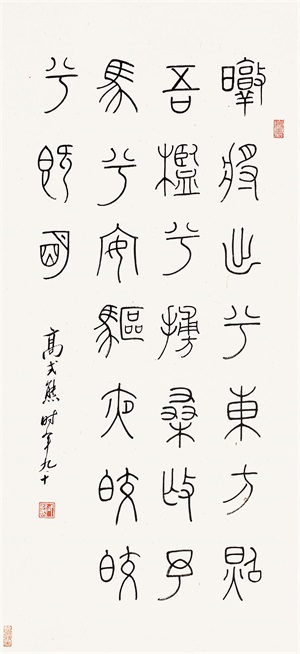 暾將出兮東方照
吾檻兮扶桑撫予
馬兮安驅夜皎皎
兮既明
高式熊時年九十